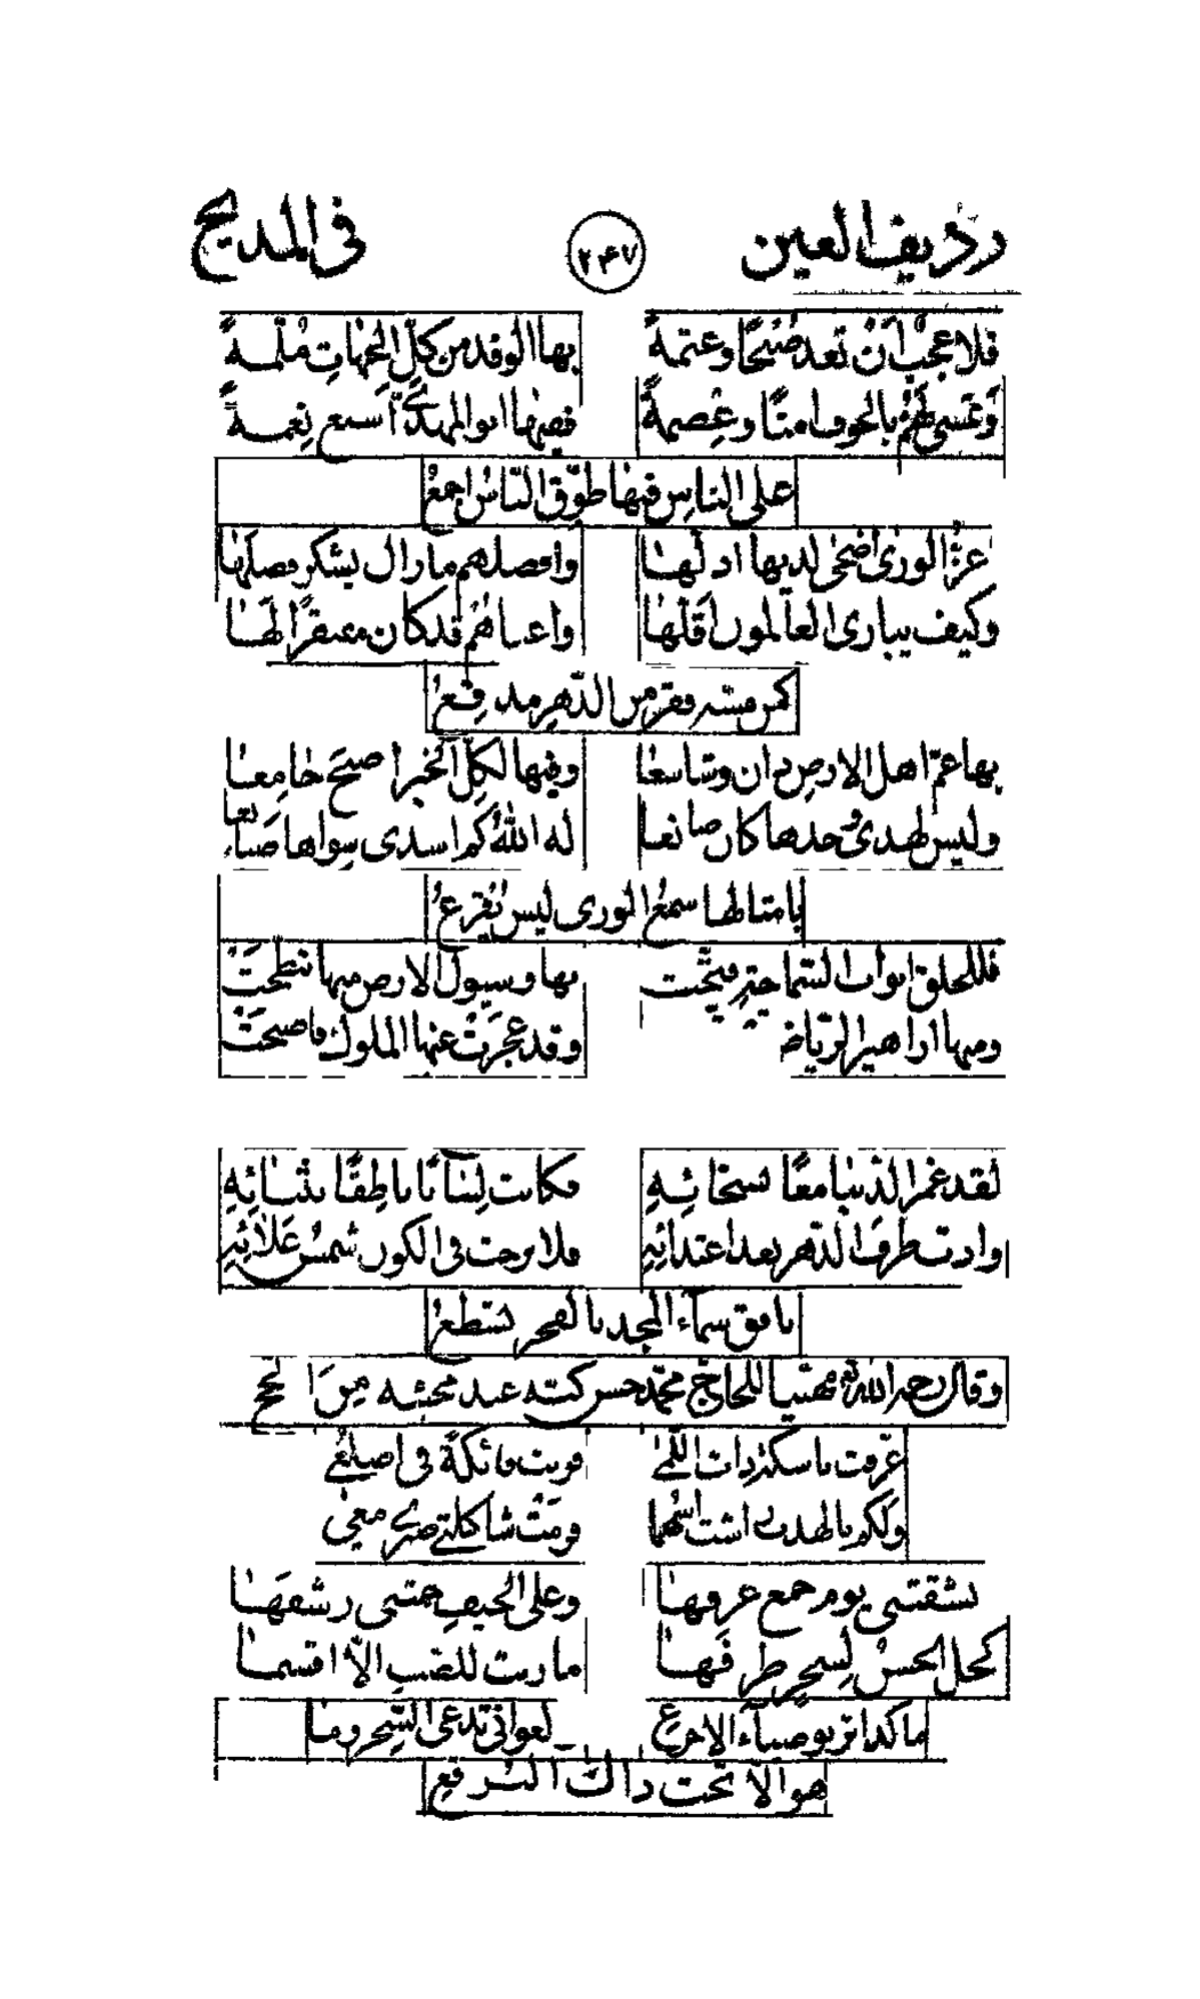 رديف العين ٢٤٧ في المديح
فلا عجبٌ أنْ تعد صُبحًا وعتمةً بها الوفد من كلّ الجهاتِ مُلمّـةً
وتمسي لهمْ بالخوف امنًا وعِصمةً ففيها ابو المهديّ اسبع نِعمـةً
على الناسِ فيها طوّق النّاسُ اجمعُ
عزّ الورى أضحى لديها اذلّها وافضلهم مازال يشكر فضلها
وكيف يبارى العالمون اقلّها واغناهُمُ قد كان مفتقرًا لها
كمن مسّه فقر من الدّهرِ مدقِعُ
بها عمّ اهل الارض دانٍ وشاسعا وفيها لكلّ الخير اصبحَ جامعا
وليس لمهدى وحدها كان صانعا له اللّهُ كم اسدى سواها صنائعا
بامثالها سمعُ الورى ليس يُقرعُ
فللخلق ابواب السّما حين فتّحت بها وسيول الارض منها تبطّحتْ
ومنها ازاهير الرّياض وقد عجزتْ عنها الملوك فاصبحتْ
لقد غمر الدّنيا معًا بسخائهِ فكانت لِسانًا ناطِقًا بثنائِهِ
وادت طرفَ الدّهر بعد اعتدائِهِ فلا برحت في الكون شمسُ عَلائِهِ
بافق سمآء المجد بالفخر تسطعُ
وقال رحمه اللّه مهنّيا للحاجّ محمّد حسن كبّه عند مجيئه مِنَ الحجّ
عرفت ما سكنَ ذات اللّمى فرمت فاتكةً فى اضلعي
ولكم بالهدب اشت اسهما ورمَتْ شاكلتي صبري معي
نشقتنى يوم جمع عرفها وعلى الخيفِ حمتنى رشفها
كحل الحسنُ لِسحرٍ طرفها مارنت للصّب الاّ اقسما
ما كذا ترنو ضباء الاجرعِ لغوانى تدعى السّحر وما
هو الاّ تحت ذاك البُرقعِ